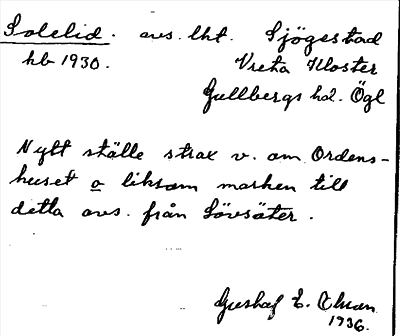 Solelid. avs. lht. Sjögestad
hb 1930. Vreta Kloster
Gullbergs hd. Ögl
Nytt ställe strax v. om Ordens-
huset o liksom marken till
detta avs. från Lövsäter.
Gustaf E. Ohman
1936.